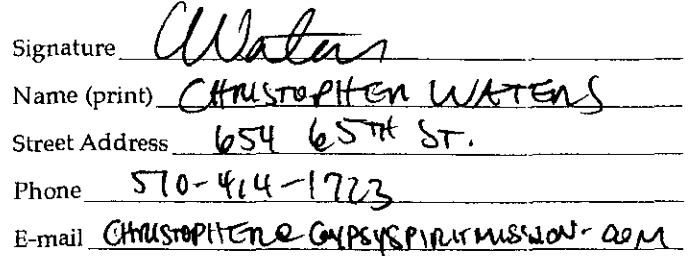 Signature CWaters
Name (print) CHRISTOPHER WATERS
Street Address 654 65TH ST.
Phone 510-414-1723
E-mail CHRISTOPHER@GYPSYSPIRITMISSION.COM